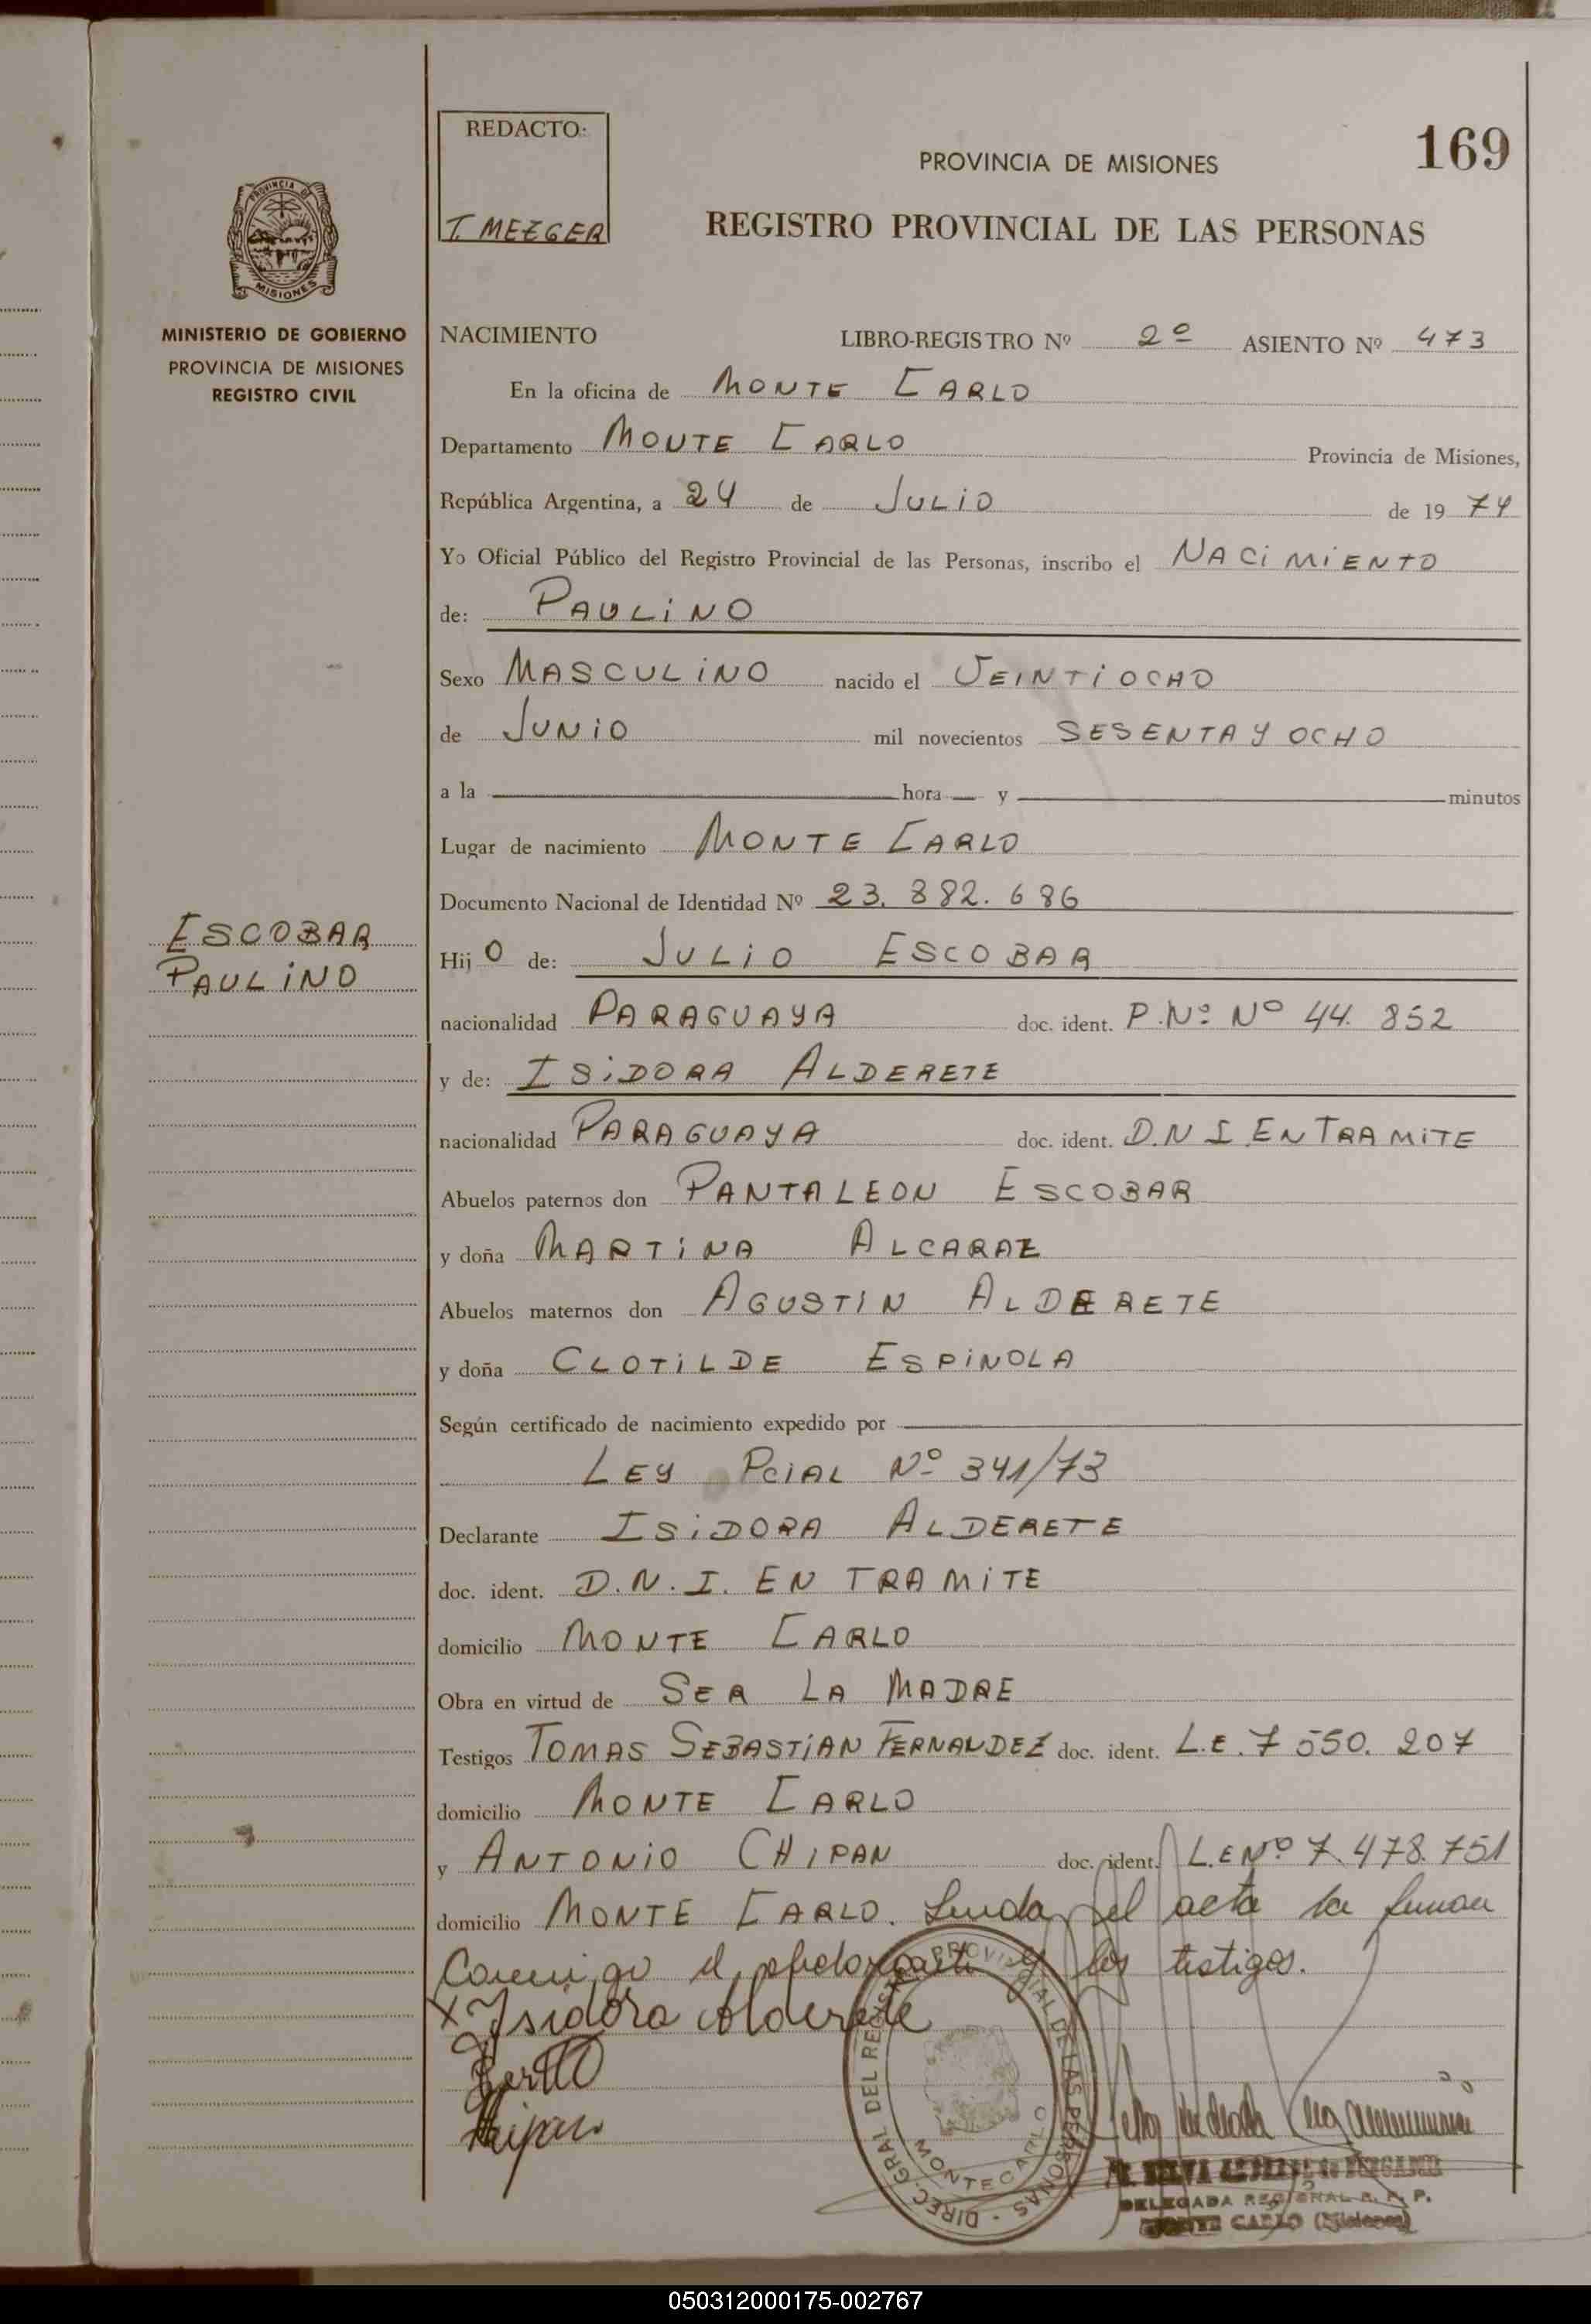 REDACTO:
T. MEZGER
169
PROVINCIA DE MISIONES
REGISTRO PROVINCIAL DE LAS PERSONAS
PROVINCIA DE
MISIONES
MINISTERIO DE GOBIERNO
PROVINCIA DE MISIONES
REGISTRO CIVIL
NACIMIENTO LIBRO-REGISTRO Nº 2º ASIENTO Nº 473
En la oficina de MONTE CARLO
Departamento MONTE CARLO Provincia de Misiones,
República Argentina, a 24 de JULIO de 1974
Yo Oficial Público del Registro Provincial de las Personas, inscribo el NACIMIENTO
de: PAULINO
Sexo MASCULINO nacido el VEINTIOCHO
de JUNIO mil novecientos SESENTA Y OCHO
a la hora y minutos
Lugar de nacimiento MONTE CARLO
Documento Nacional de Identidad Nº 23.882.686
ESCOBAR
PAULINO
Hijo de: JULIO ESCOBAR
nacionalidad PARAGUAYA doc. ident. P.Nº Nº 44.852
y de: ISIDORA ALDERETE
nacionalidad PARAGUAYA doc. ident. D.N I EN TRAMITE
Abuelos paternos don PANTALEON ESCOBAR
y doña MARTINA ALCARAZ
Abuelos maternos don AGUSTIN ALDERETE
y doña CLOTILDE ESPINOLA
Según certificado de nacimiento expedido por
LEY PCIAL Nº 341/73
Declarante ISIDORA ALDERETE
doc. ident. D.N.I. EN TRAMITE
domicilio MONTE CARLO
Obra en virtud de SER LA MADRE
Testigos TOMAS SEBASTIAN FERNANDEZ doc. ident. L.E. 7 550.207
domicilio MONTE CARLO
y ANTONIO CHIPAN doc. ident. L.E Nº 7.478.751
domicilio MONTE CARLO. Leida el acta la firman
Conmigo el y los testigos.
X Isidora Alderete
DIREC. GRAL DEL REGISTRO PROVINCIAL DE LAS PERSONAS
MONTECARLO
DELEGADA REGIONAL R. P. P.
MONTE CARLO (Misiones)
050312000175-002767